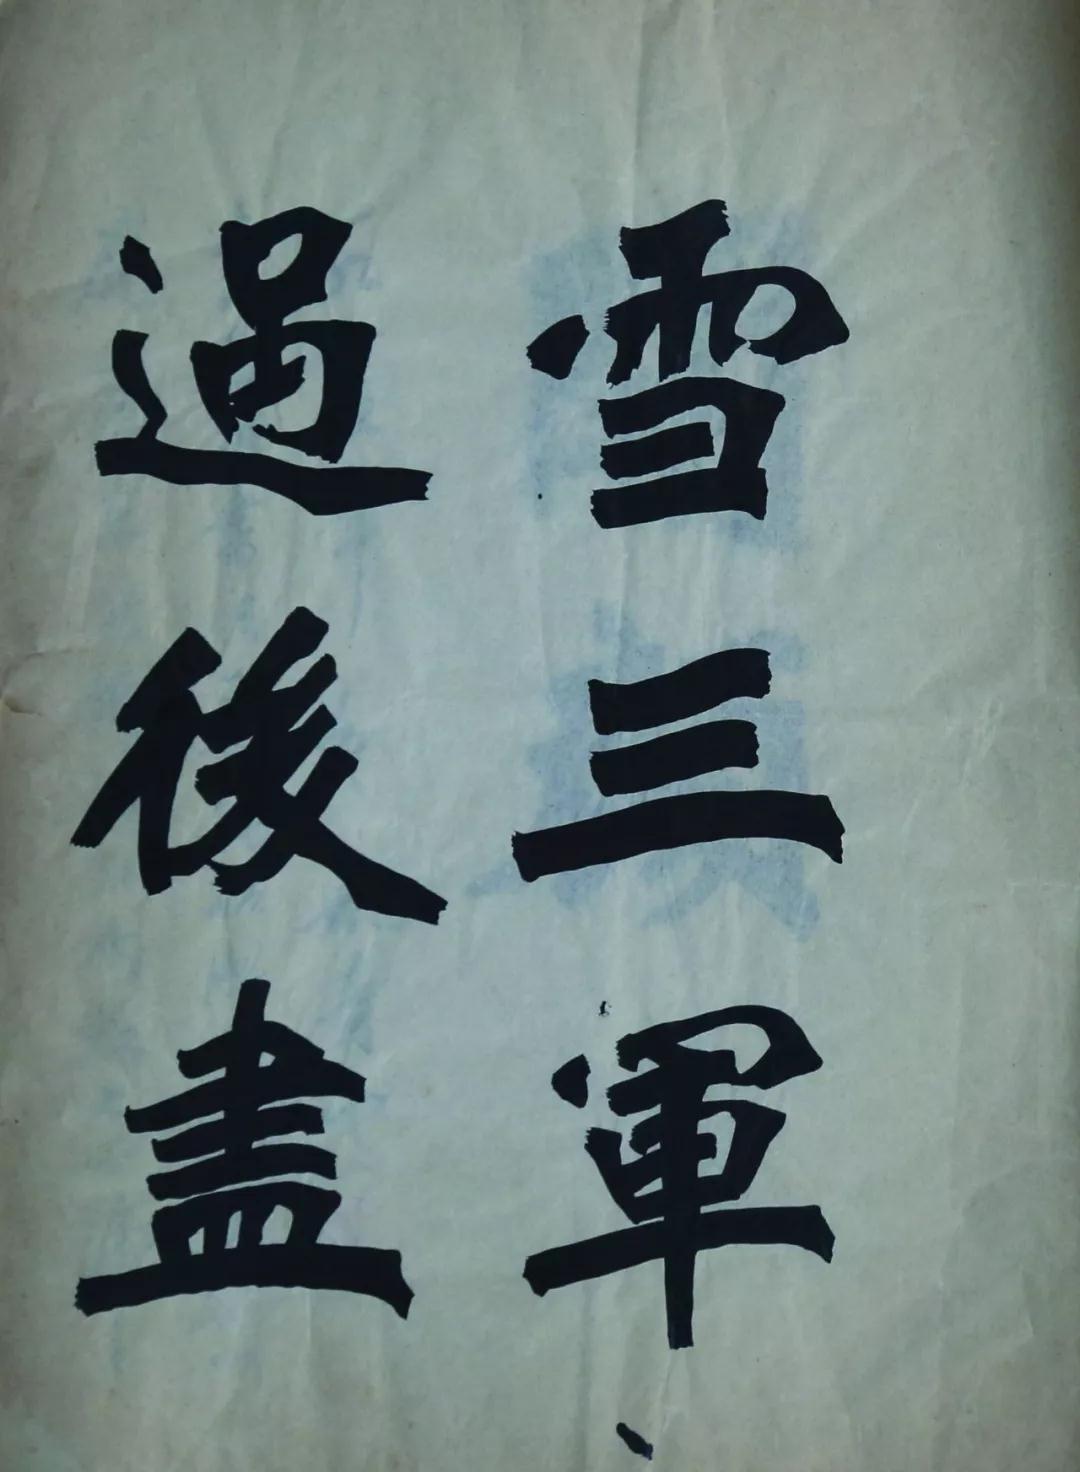 雪三軍
過後盡